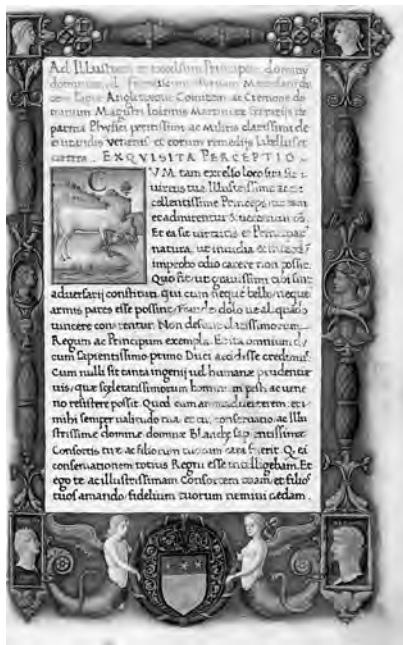 Ad Illustrem et excelsum Principem dominum
dominum d. Franciscum
Anglerieque Comitem ac Cremone do
minum Magistri Ioannis Martini de
parma Physici peritissimi ac Militis clarissimi de
euitandis venenis et eorum remedijs libellus
EXQUISITA PERCEPTIO
CVM tam excelso loco sita sit
uirtus tua Illustrissime ac ex
cellentissime Princeps ut eam
et admirentur &
Et ea sit uirtutis et
natura, ut inuidia &
improbo odio carere non possit.
Quo fit ut grauissimi tibi sint
aduersarij constituti, qui cum neque bello neque
armis pares esse possint, fraude dolo
uincere conentur. Non desunt clarissimorum
Regum ac Principum exempla.
cum sapientissimo primo Duci accidisse credimus.
Cum nulli sit tanta ingenij uel humanae prudentiae
uis, quae sceleratissimorum hominum pesti ac uene
no resistere possit. Quod cum animaduerterem, et
mihi semper ualitudo tua, et conseruatio, ac Illu
strissimae dominae dominae Blanche sapientissimae
Consortis tuae ac filiorum tuorum cara fuerit. Q. ei
conseruationem totius Regni esse intelligebam. Et
ego te ac illustrissimam Consortem tuam, et filios
tuos amando, fidelium tuorum nemini cedam.